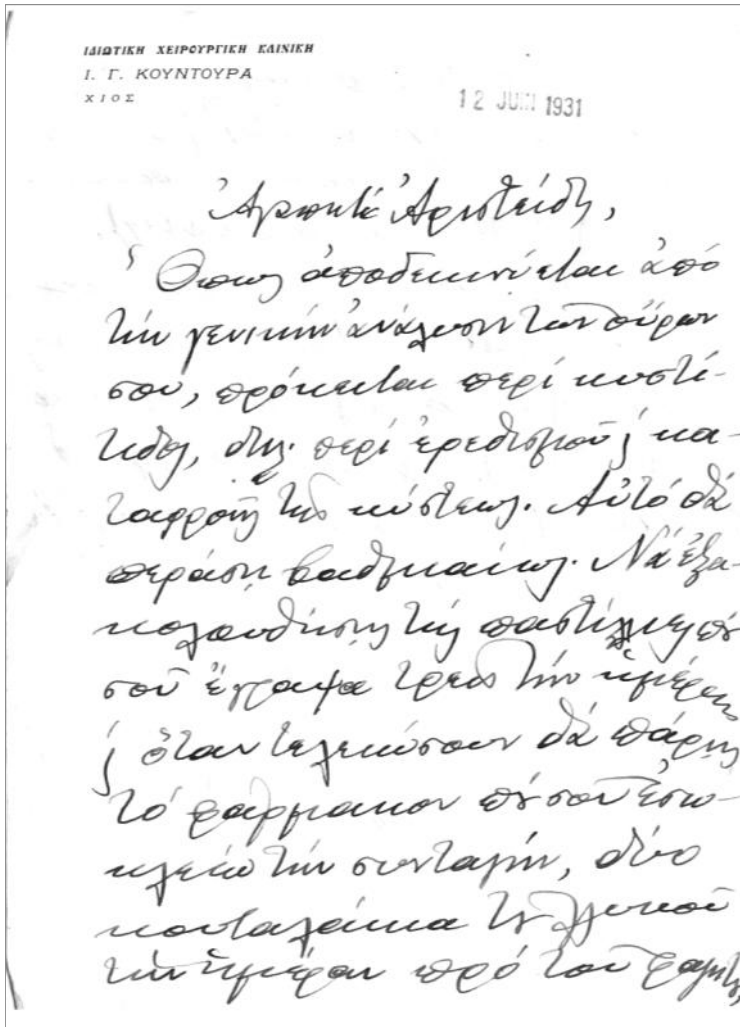 ΙΔΙΩΤΙΚΗ ΧΕΙΡΟΥΡΓΙΚΗ ΚΛΙΝΙΚΗ
Ι. Γ. ΚΟΥΝΤΟΥΡΑ
ΧΙΟΣ
12 JUIN 1931
Ἀγαπητέ Ἀριστείδη,
Ὅπως ἀποδεικνύεται ἀπό
τήν γενικήν ἀνάλυσιν των οὔρων
σου, πρόκειται περί κυστί-
τιδος, δηλ. περί ἐρεθισμοῦ ϗ κα-
ταρροῆς τῆς κύστεως. Αὐτό θά
περάσῃ βαθμιαίως. Νά ἐξα-
κολουθήσῃς τίς παστίλλιες πού
σοῦ ἔγραψα τρεῖς τήν ἡμέραν
ϗ ὅταν τελειώσουν θά πάρῃς
τό φάρμακον πού σοῦ ἐσω-
κλείω τήν συνταγήν, δύο
κουταλάκια τοῦ γλυκοῦ
τήν ἡμέραν πρό τοῦ φαγητοῦ,